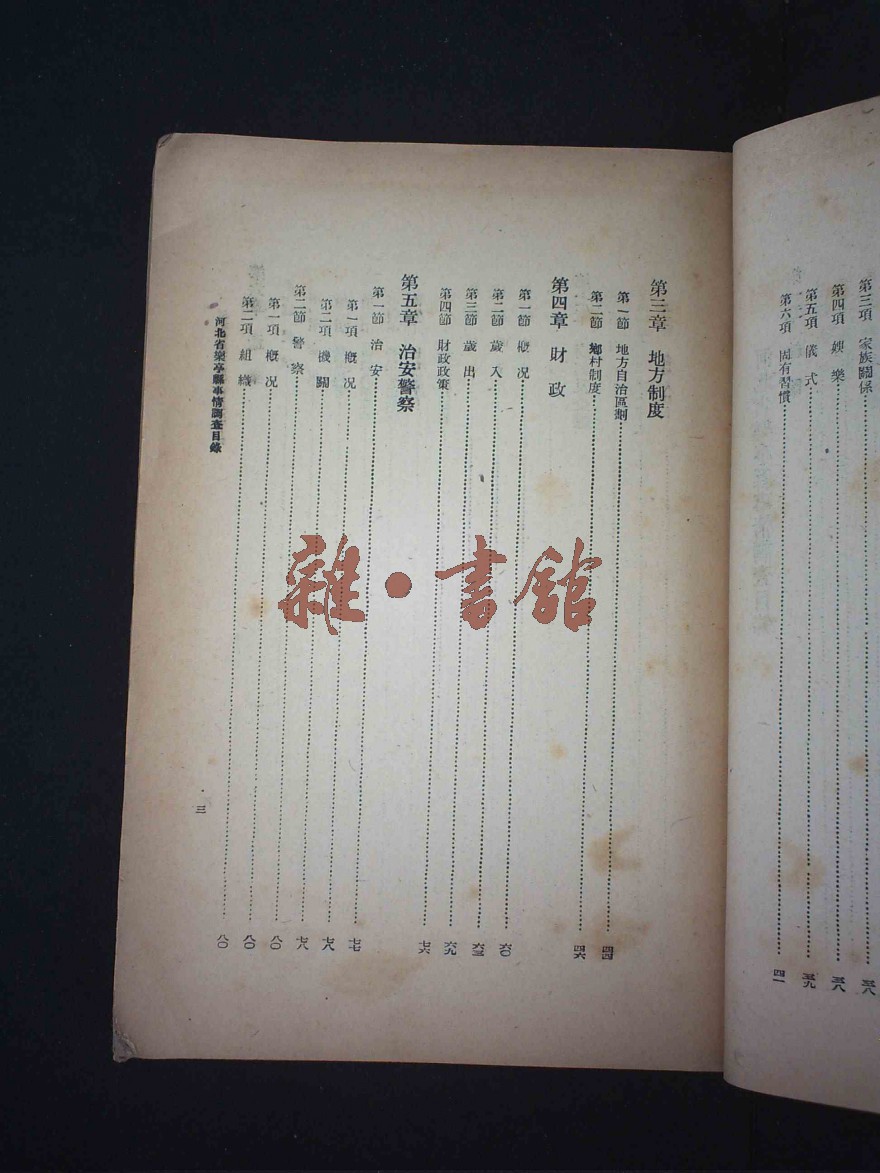 第三項 家族關係……三八
第四項 娛樂……三八
第五項 儀式……三九
第六項 固有習慣……四一
第三章 地方制度
第一節 地方自治區劃……四四
第二節 鄉村制度……四六
第四章 財政
第一節 概况……六〇
第二節 歲入……六三
第三節 歲出……六九
第四節 財政政策……七六
第五章 治安警察
第一節 治安……七七
第一項 概况……七八
第二項 機關……七八
第二節 警察……八〇
第一項 概况……八〇
第二項 組織……八〇
河北省樂亭縣事情調査目錄
三
雜·書館